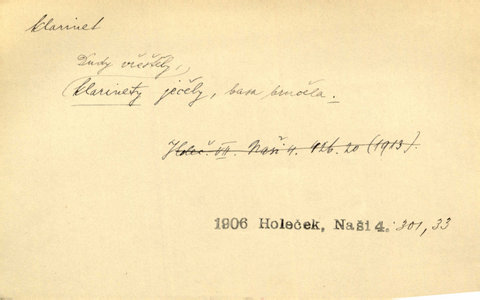 klarinet
Dudy vřeštěly,
klarinety ječely, basa bručela.
Holeč. VII. Naši 4. 426. 20 (1913).
1906 Holeček, Naši 4. 301, 33